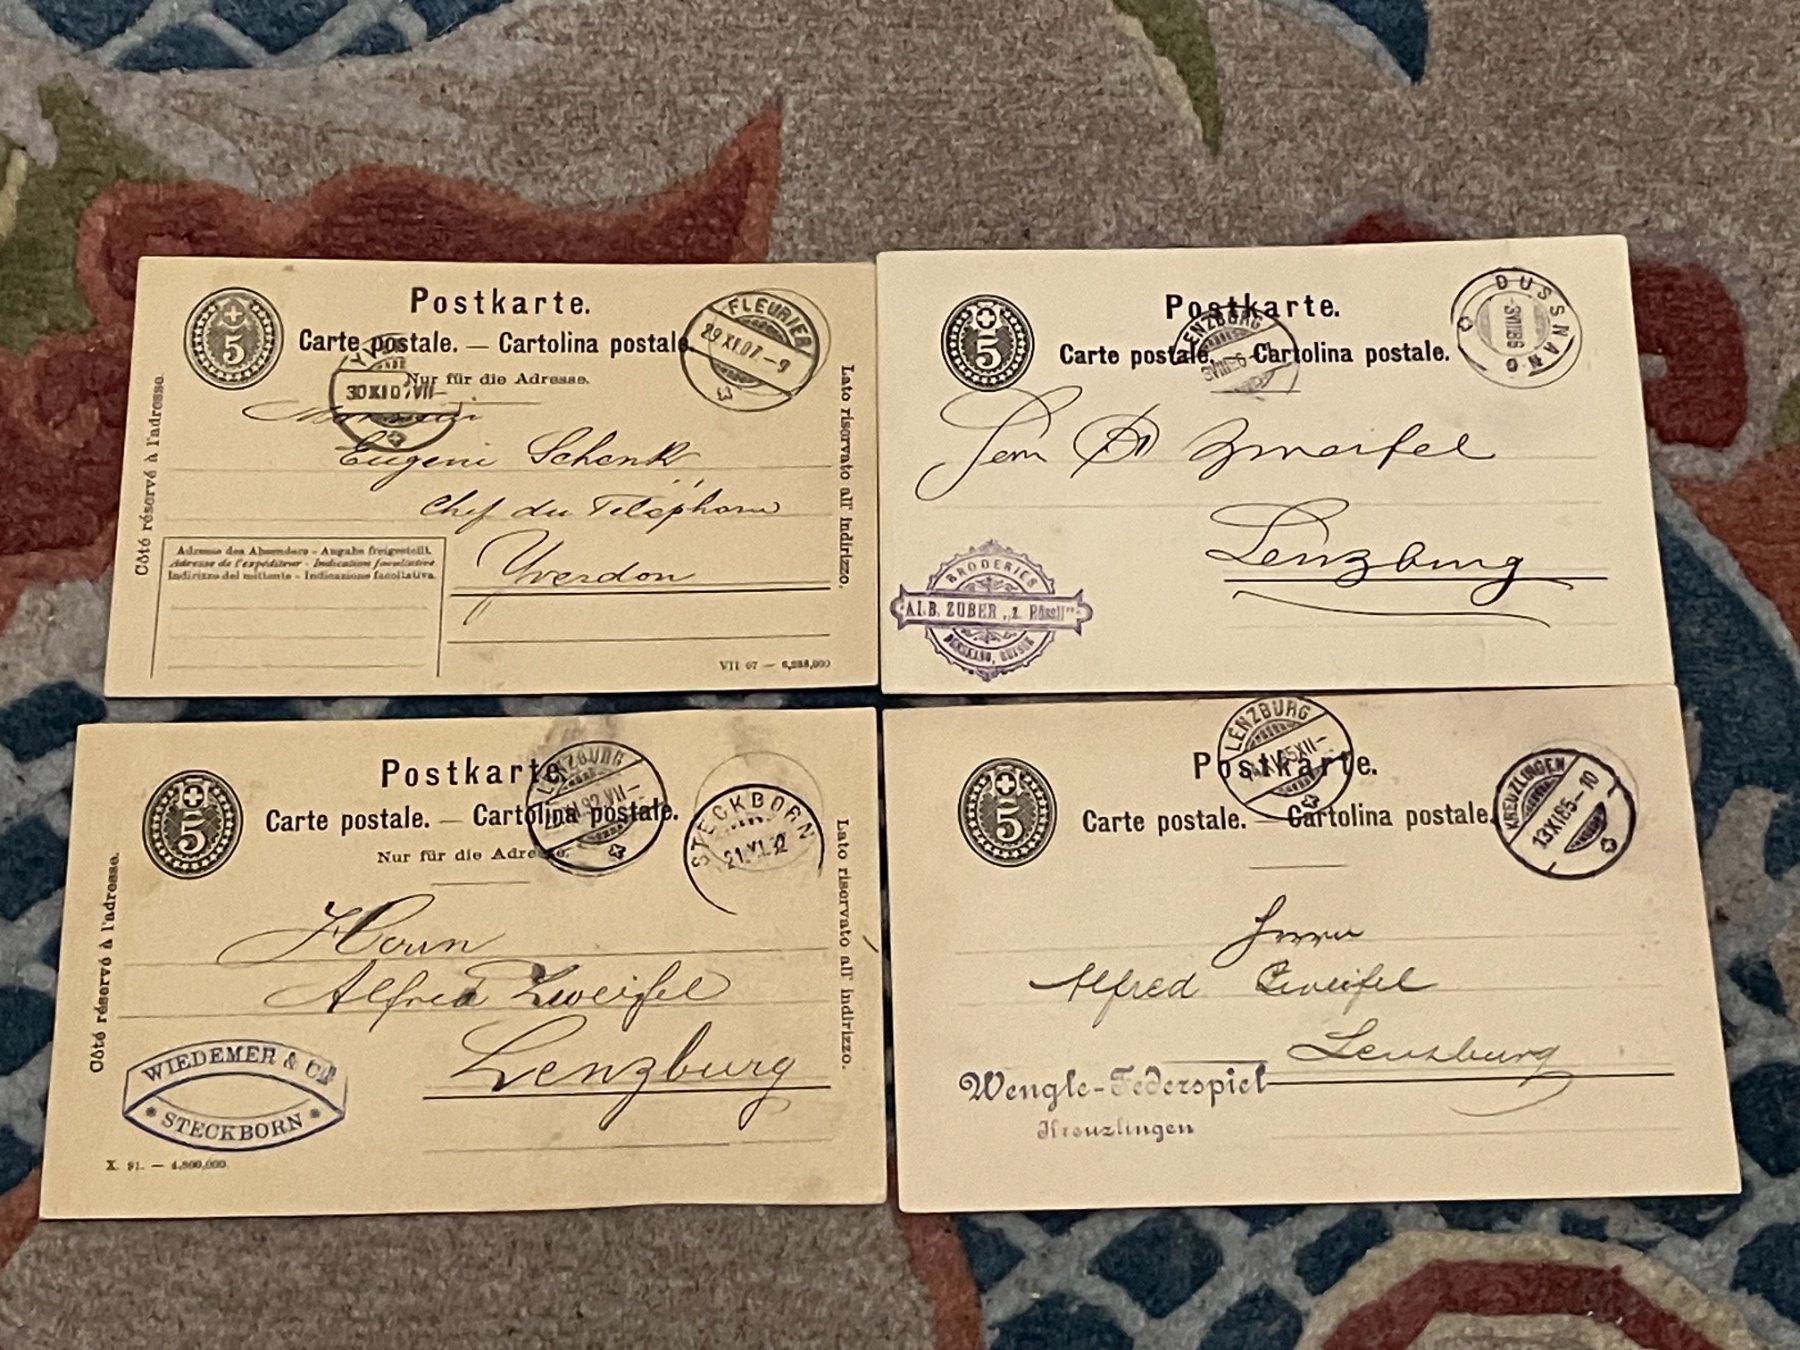 5
Postkarte.
Carte postale. — Cartolina postale.
Nur für die Adresse.
FLEURIER
29 XI.07.–9
30 XI 07.VII–
Côté réservé à l'adresse.
Lato riservato all' indirizzo.
Monsieur
Eugène Schenk
Chef du Téléphone
Yverdon
Adresse des Absenders – Angabe freigestellt.
Adresse de l'expéditeur – Indication facultative
Indirizzo del mittente – Indicazione facoltativa.
VII 07 — 6,288,000
5
Postkarte.
Carte postale. — Cartolina postale.
LENZBURG
DUSSNANG
Zweifel
Lenzburg
BRODERIES
ALB. ZUBER „z. Rössli"
5
Postkarte.
Carte postale. — Cartolina postale.
Nur für die Adresse.
LENZBURG
STECKBORN
21.XI.92
Côté réservé à l'adresse.
Lato riservato all' indirizzo.
Herrn
Alfred Zweifel
Lenzburg
WIEDEMER & Cie
STECKBORN
X. 91. — 4,800,000.
5
Postkarte.
Carte postale. — Cartolina postale.
LENZBURG
KREUZLINGEN
13 XI 85–10
Herrn
Alfred Zweifel
Lenzburg
Wengle-Federspiel
Kreuzlingen